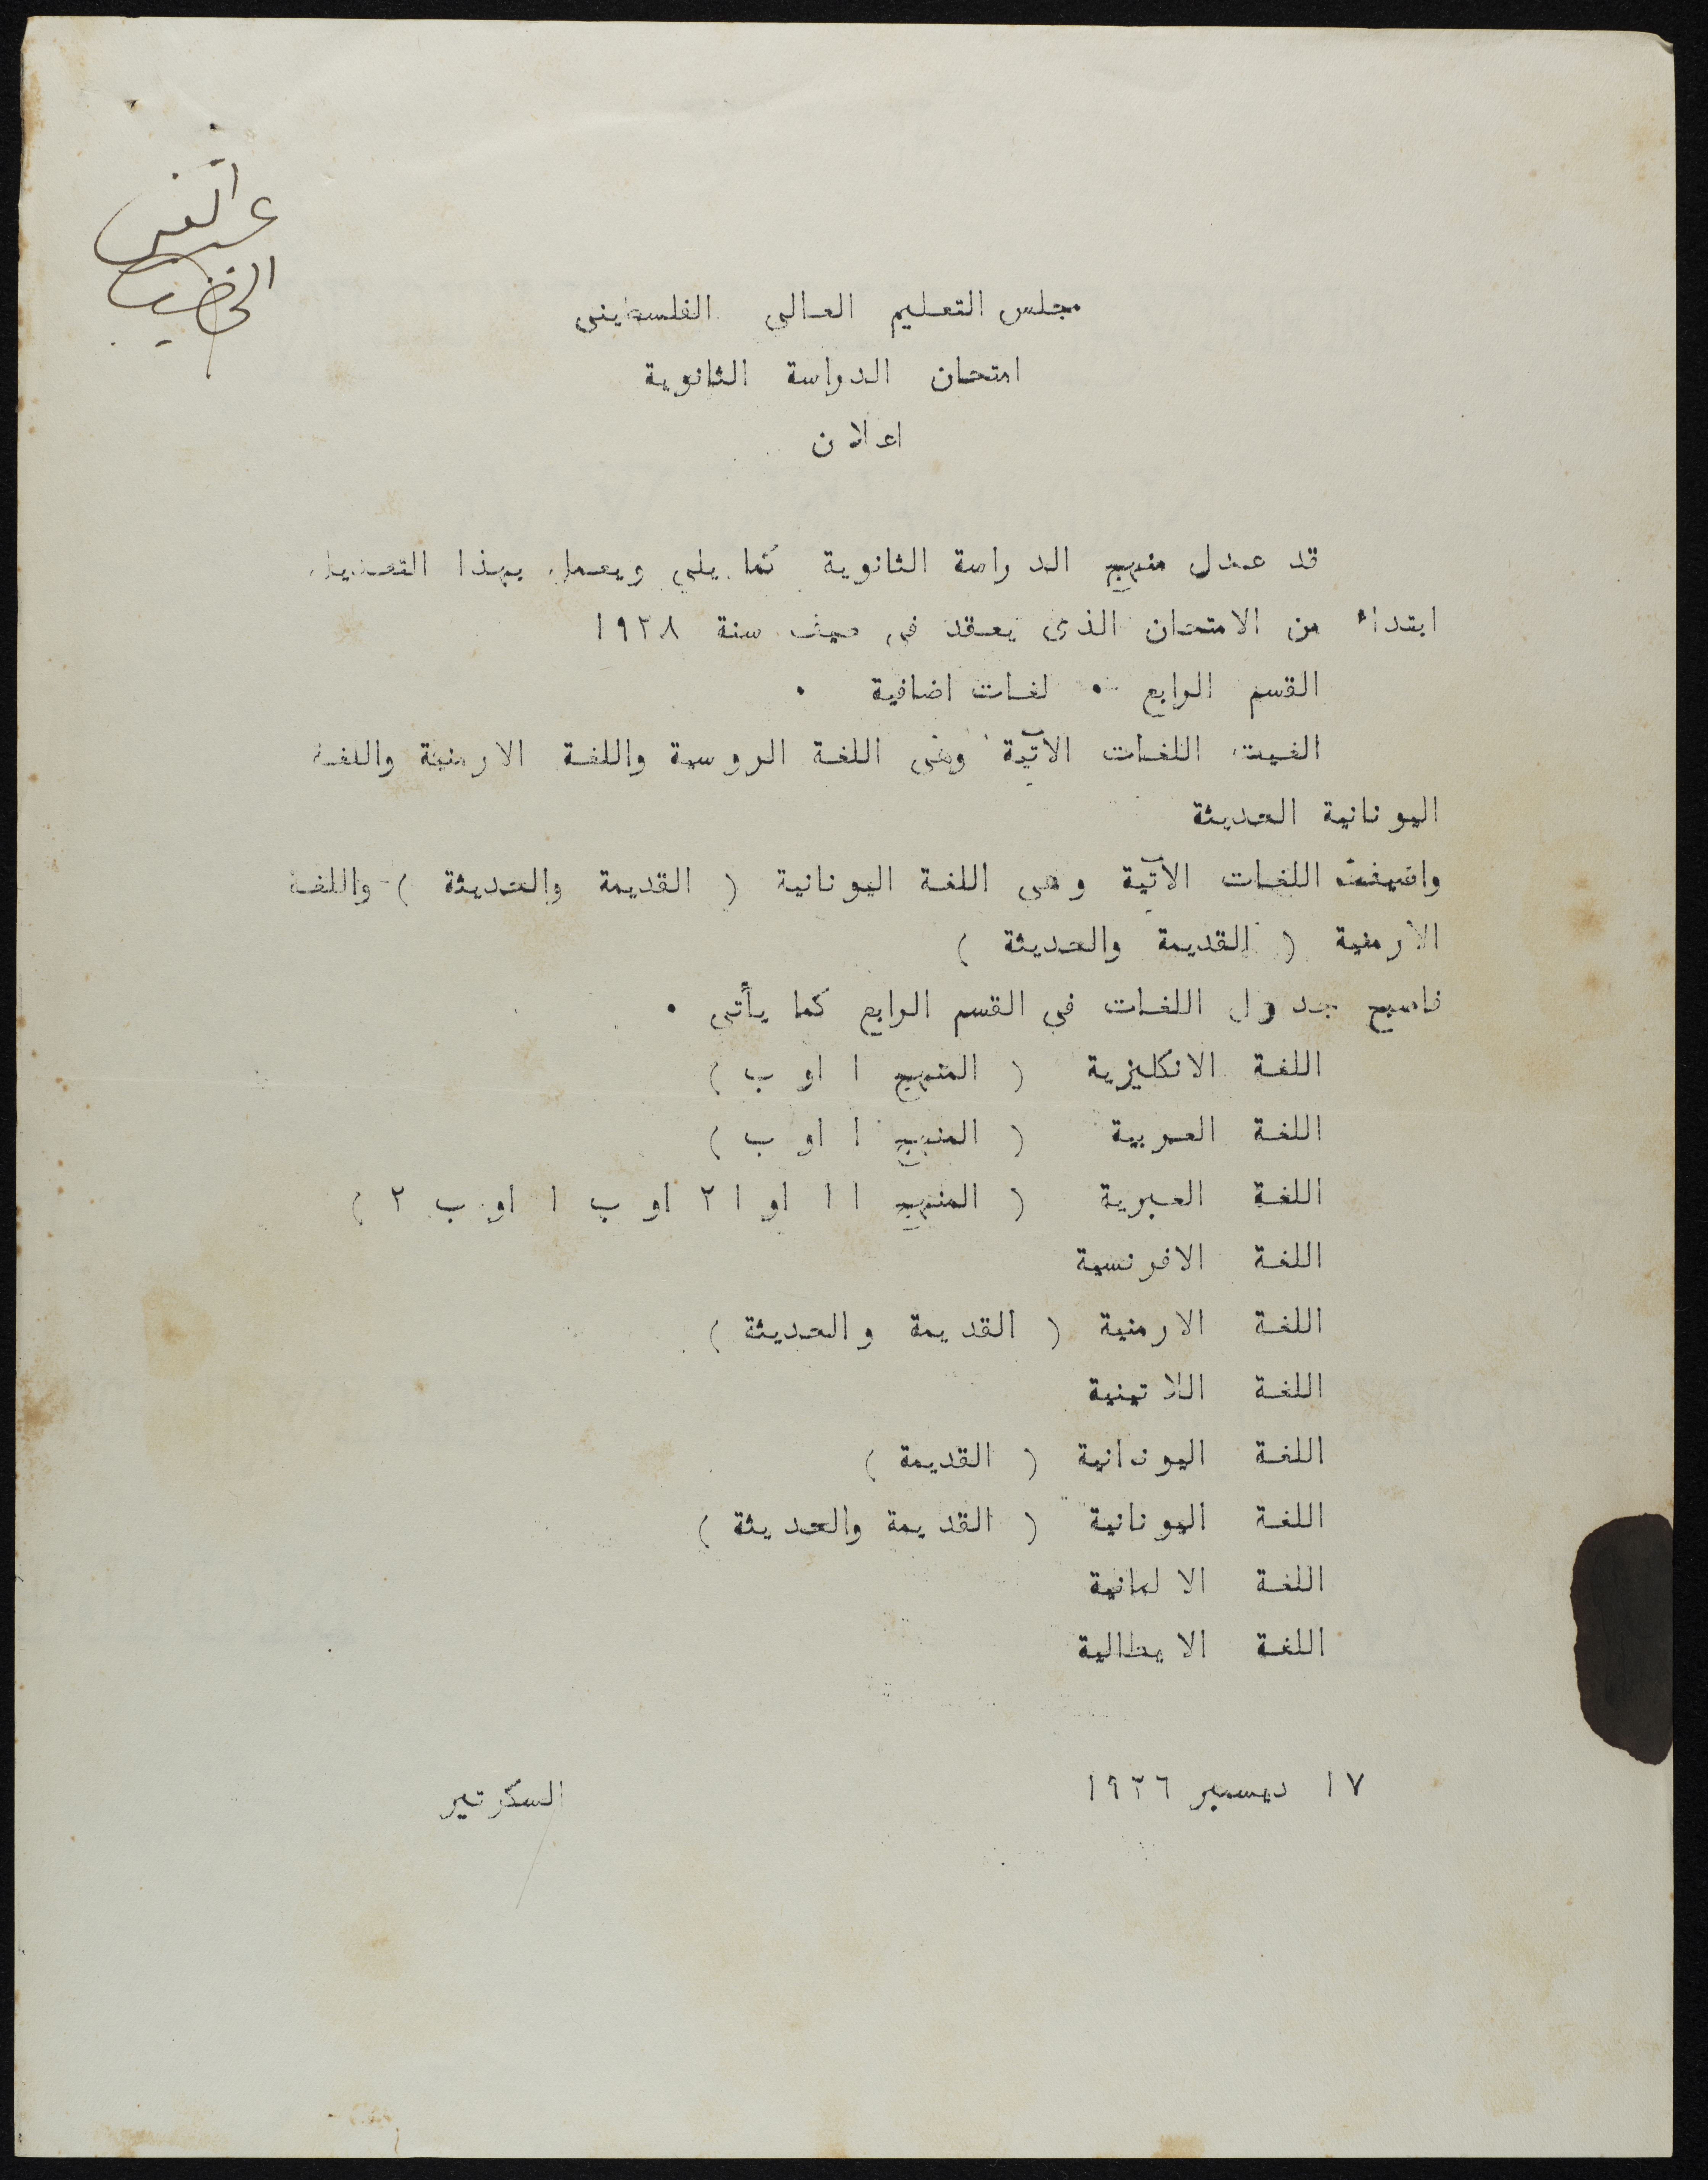 عبد الغني
الخطيب
مجلس التعليم العالى الفلسطينى
امتحان الدراسة الثانوية
اعلان
قد عدل منهج الدراسة الثانوية كما يلي ويعمل بهذا التعديل
ابتداء من الامتحان الذى يعقد فى صيف سنة ١٩٣٨
القسم الرابع ٠ لغات اضافية ٠
الغيت اللغات الآتية وهى اللغة الروسية واللغة الارمنية واللغة
اليونانية الحديثة
واضيفت اللغات الآتية وهى اللغة اليونانية ( القديمة والحديثة ) واللغة
الارمنية ( القديمة والحديثة )
فاصبح جدول اللغات فى القسم الرابع كما يأتى ٠
اللغة الانكليزية ( المنهج ا او ب )
اللغة العربية ( المنهج ا او ب )
اللغة العبرية ( المنهج ا ١ او ا ٢ او ب ١ او ب ٢ )
اللغة الافرنسية
اللغة الارمنية ( القديمة والحديثة )
اللغة اللاتينية
اللغة اليونانية ( القديمة )
اللغة اليونانية ( القديمة والحديثة )
اللغة الالمانية
اللغة الايطالية
١٧ ديسمبر ١٩٣٦
السكرتير